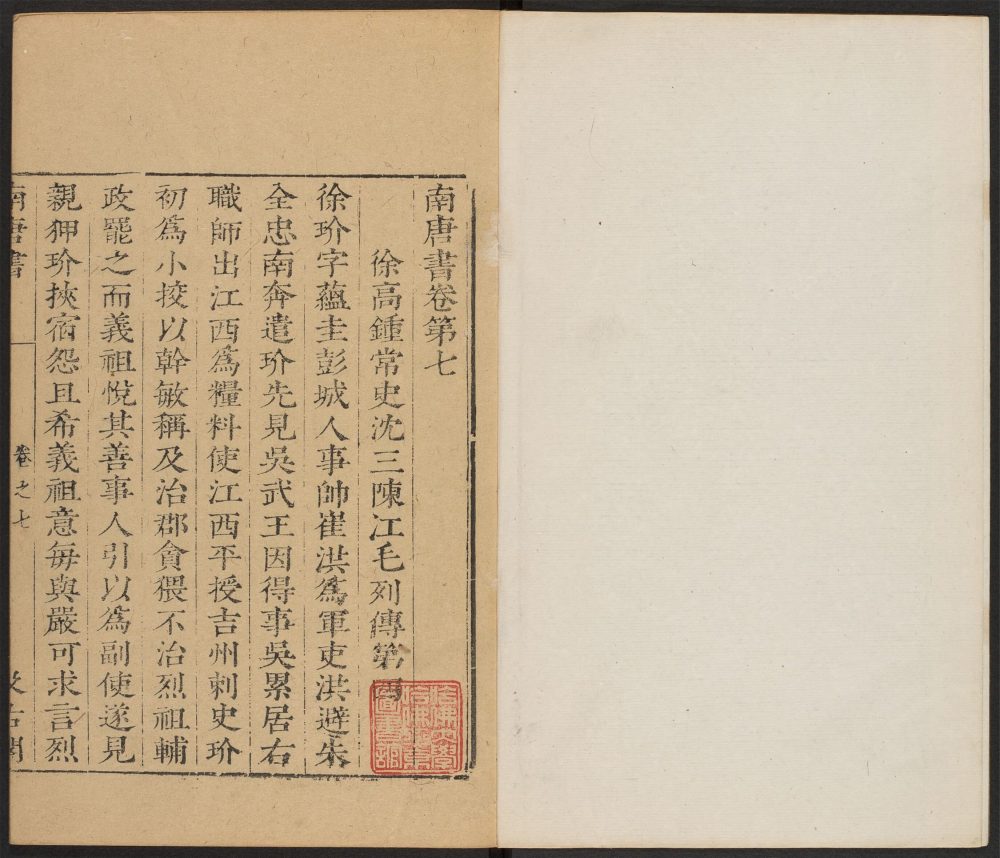 南唐書卷第七
徐高鍾常史沈三陳江毛列傳第四
徐玠字蘊圭彭城人事帥崔洪爲軍吏洪避朱
全忠南奔遣玠先見吳武王因得事吳累居右
職師出江西爲糧料使江西平授吉州刺史玠
初爲小挍以幹敏稱及治郡貪猥不治烈祖輔
政罷之而義祖悅其善事人引以爲副使遂見
親狎玠挾宿怨且希義祖意每與嚴可求言烈
南唐書
卷之七
汲古閣
哈佛大學
哈佛燕京
圖書館